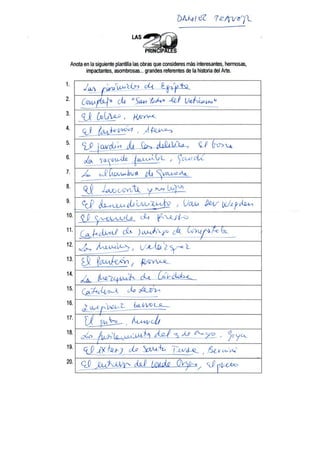 DANIEL
LAS
20
PRINCIPALES
Anota en la siguiente plantilla las obras que consideres más interesantes, hermosas,
impactantes, asombrosas... grandes referentes de la historia del Arte.
1. Las pirámides de Egipto
2. Complejo de "San Pedro del Vaticano"
3. El Coliseo, Roma
4. El Partenón, Atenas
5. El jardín de las delicias, El Bosco
6. La sagrada familia, Gaudí
7. La alhambra de Granada
8. El Laoconte y sus hijos
9. El descendimiento, Van der Weyden
10. El guernica de
11. Catedral de Santiago de Compostela
12. Las Meninas, Velázquez
13. El Panteón, Roma
14. La Mezquita de Córdoba
15. Catedral de León
16.
17. El grito, Munch
18. Los fusilamientos del 3 de Mayo. Goya
19. El éxtasis de Santa Teresa, Bernini
20. El entierro del Conde Orgaz, el greco